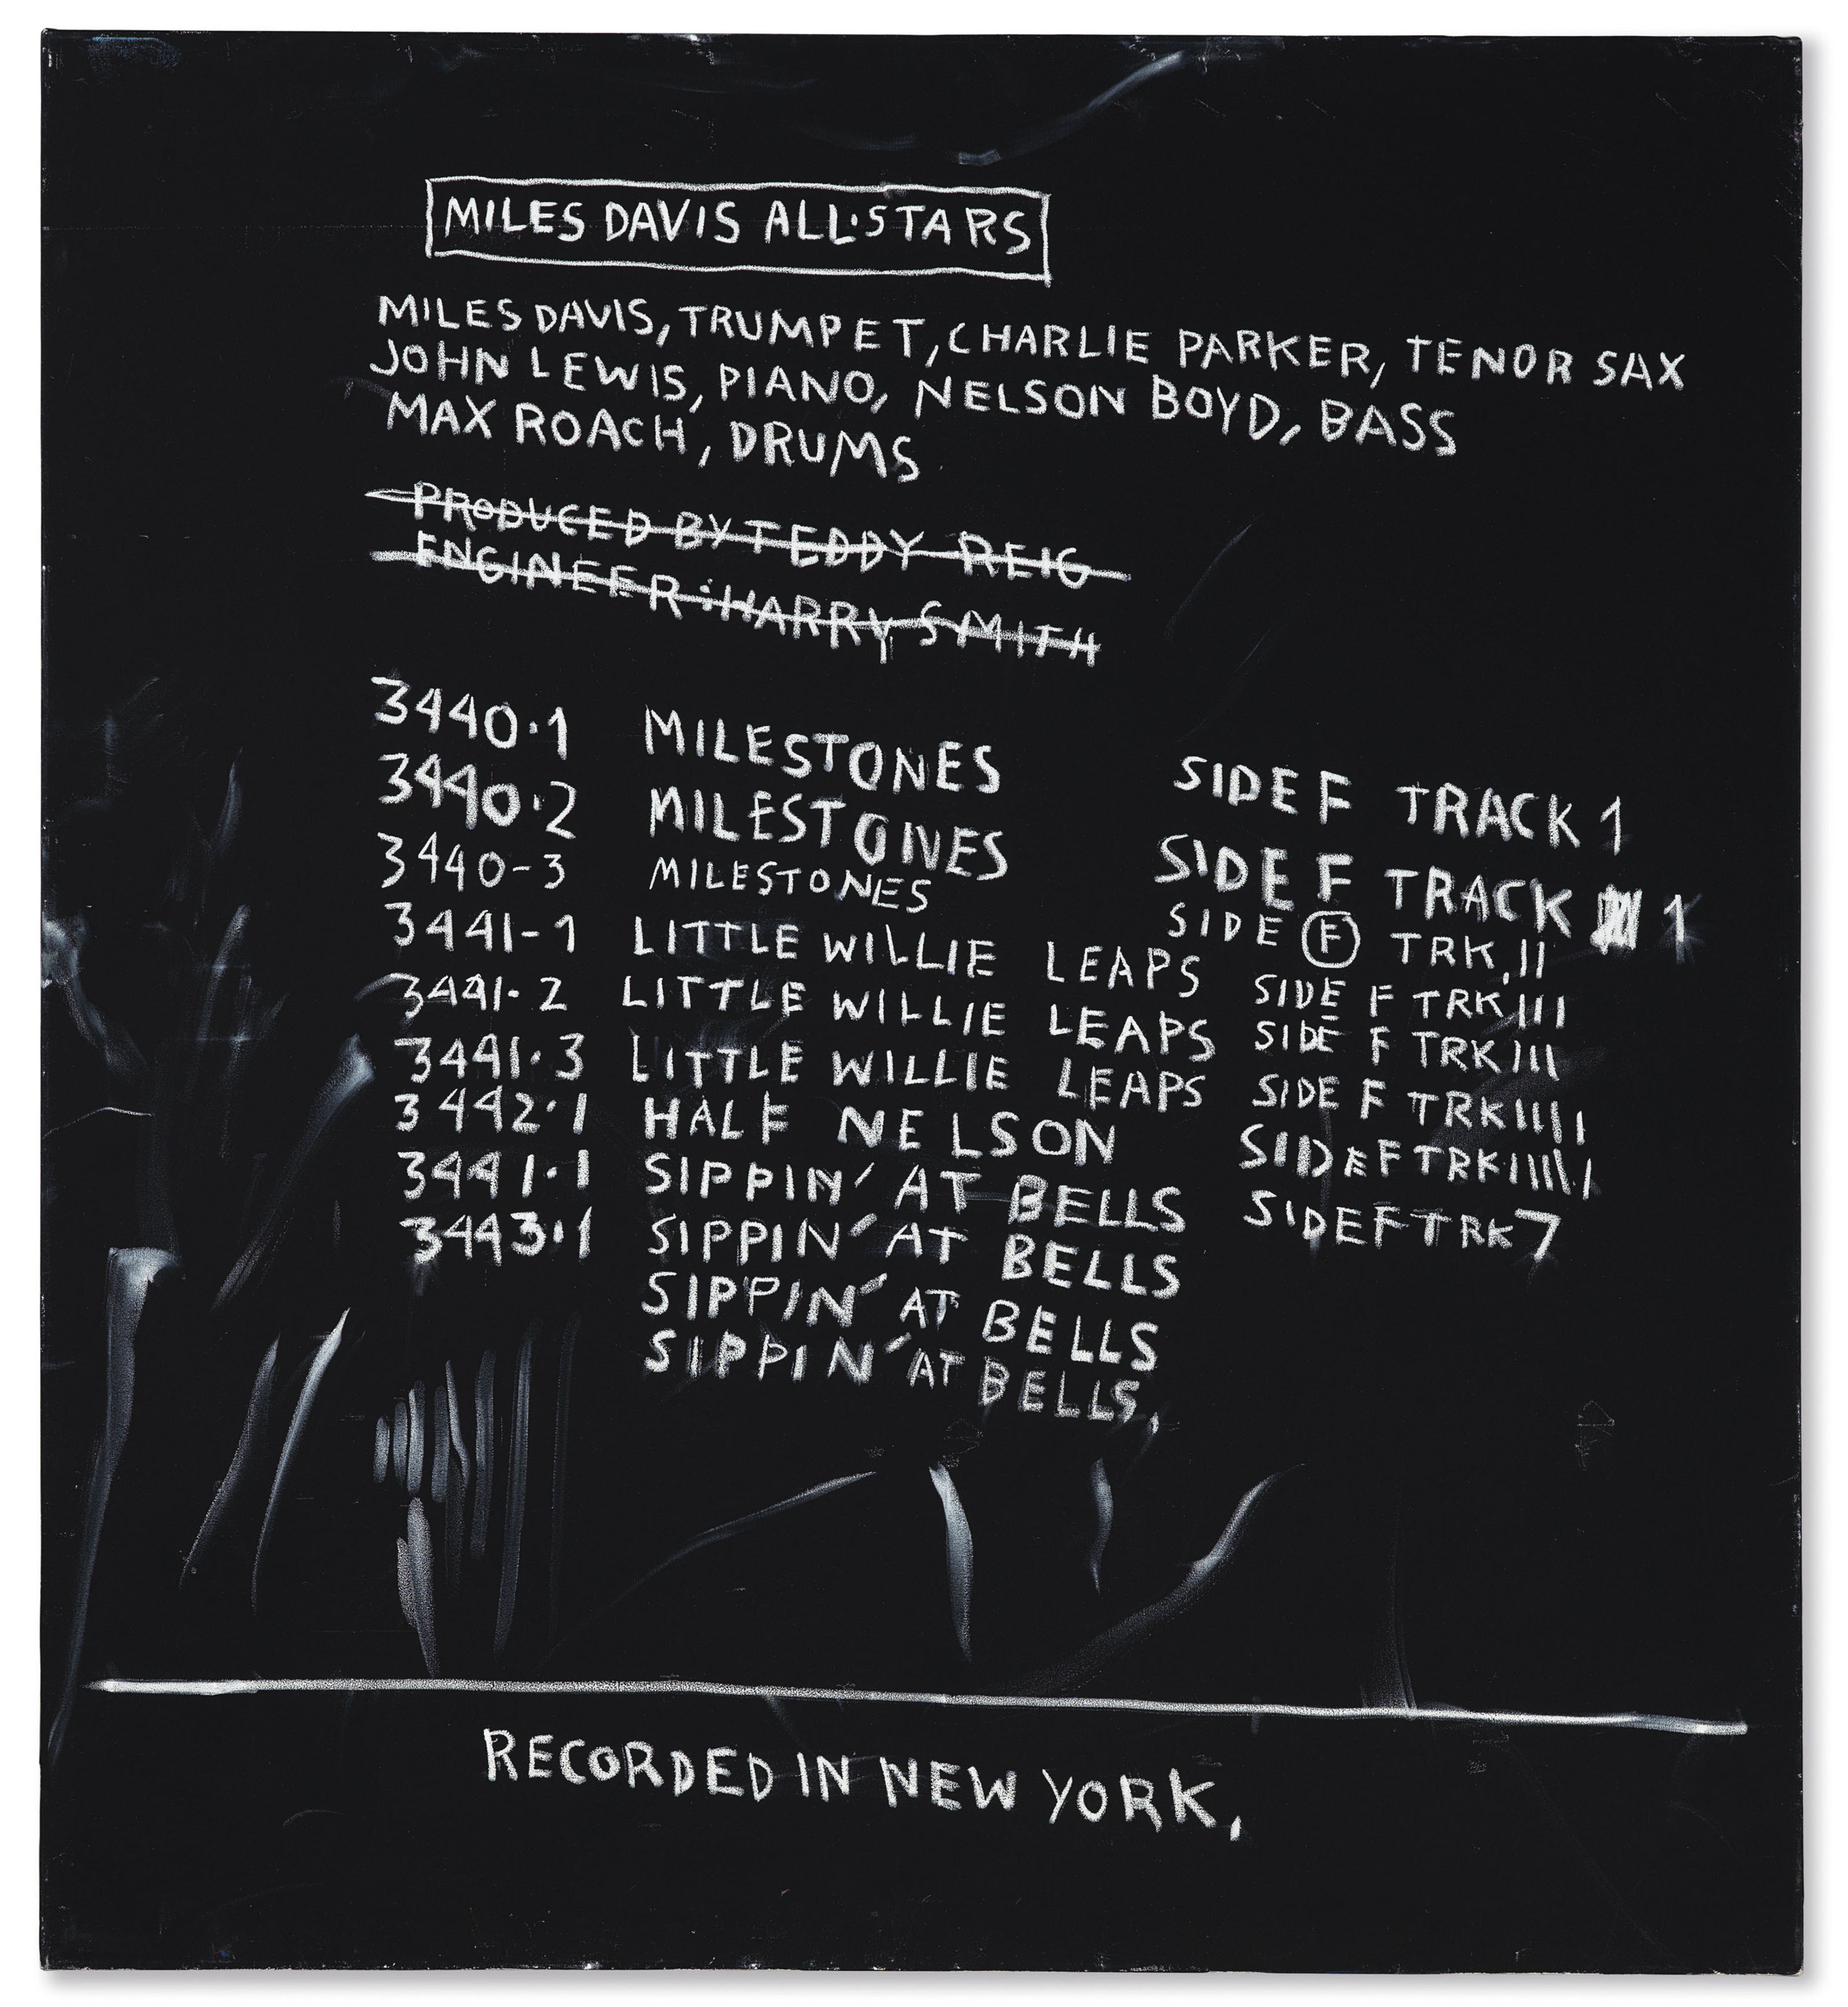 MILES DAVIS ALL·STARS
MILES DAVIS, TRUMPET, CHARLIE PARKER, TENOR SAX
JOHN LEWIS, PIANO, NELSON BOYD, BASS
MAX ROACH, DRUMS
PRODUCED BY TEDDY REIG
ENGINEER: HARRY SMITH
3440·1 MILESTONES SIDE F TRACK 1
3440·2 MILESTONES SIDE F TRACK 1
3440-3 MILESTONES SIDE F TRK, II
3441-1 LITTLE WILLIE LEAPS SIDE F TRK III
3441·2 LITTLE WILLIE LEAPS SIDE F TRK III
3441·3 LITTLE WILLIE LEAPS SIDE F TRK IIIII
3442·1 HALF NELSON SIDE F TRK IIIIII
3441·1 SIPPIN' AT BELLS SIDE F TRK 7
3443·1 SIPPIN' AT BELLS
SIPPIN' AT BELLS
SIPPIN' AT BELLS,
RECORDED IN NEW YORK,